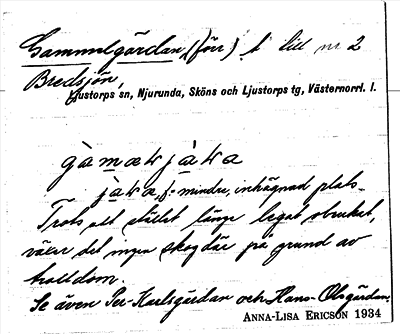 Gammelgärdan, (förr) t. till nr 2
Bredsjön,
Ljustorps sn, Njurunda, Sköns och Ljustorps tg, Västernorrl. l.
gàmaw jàwa
jawa, f: mindre, inhägnad plats.
Trots att stället länge legat obrukat,
växer det ingen skog där på grund av
trolldom.
Se även Per-Karlsgärdan och Hans-Olsgärdan.
ANNA-LISA ERICSON 1934